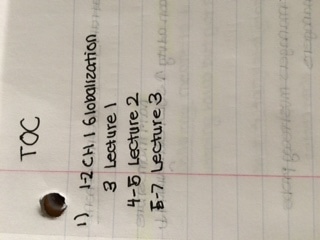 TOC
1) 1-2 CH. 1 Globalization
3 Lecture 1
4-5 Lecture 2
5-7 Lecture 3